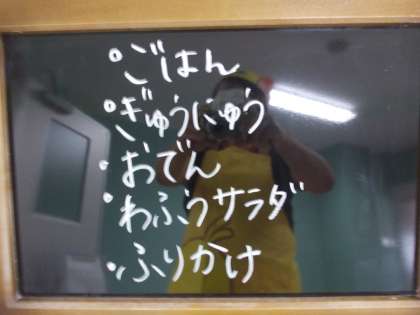 ・ごはん
・ぎゅうにゅう
・おでん
・わふうサラダ
・ふりかけ